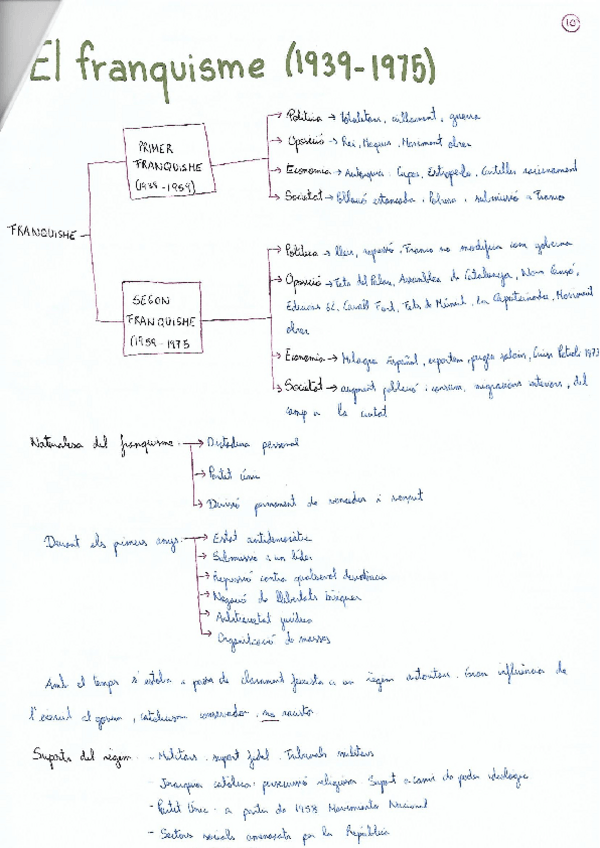 10
El franquisme (1939-1975)
Política → totalitari, aïllament, guerra
PRIMER
FRANQUISME
(1939-1959)
Oposició → Rei, Maquis, Moviment obrer
Economia → Autarquia. Cupos, Estraperlo, Cartilles racionament
Societat → Població estancada. Pobresa. submissió a Franco
FRANQUISME
Política → lleis, repressió. Franco no modifica com governa
SEGON
FRANQUISME
(1959-1975
Oposició → Fets del Palau, Assemblea de Catalunya, Nova Cançó,
Edicions 62, Cavall Fort, Fets de Múnich, La Caputxinada, Moviment
obrer
Economia → Milagro Español, exportam, puges salaris, Crisis Petroli 1973
Societat → augment població i consum, migracions interiors, del
camp a la ciutat
Naturalesa del franquisme → Dictadura personal
→ Partit únic
→ Divisió permanent de vencedors i vençut
Durant els primers anys → Estat antidemocràtic
→ Submissió a un líder
→ Repressió contra qualsevol dissidència
→ Negació de llibertats bàsiques
→ Arbitrarietat jurídica
→ Organització de masses
Amb el temps s'estableix passa de clarament feixista a un règim autoritari. Gran influència de
l'exèrcit al govern, catolicisme conservador. no racista
Suports del règim - Militars. suport fidel. Tribunals militars
- Jerarquia catòlica: persecució religiosa Suport a canvi de poder ideològic
- Partit Únic - a partir de 1958 Movimiento Nacional
- Sectors socials amenaçats per la República